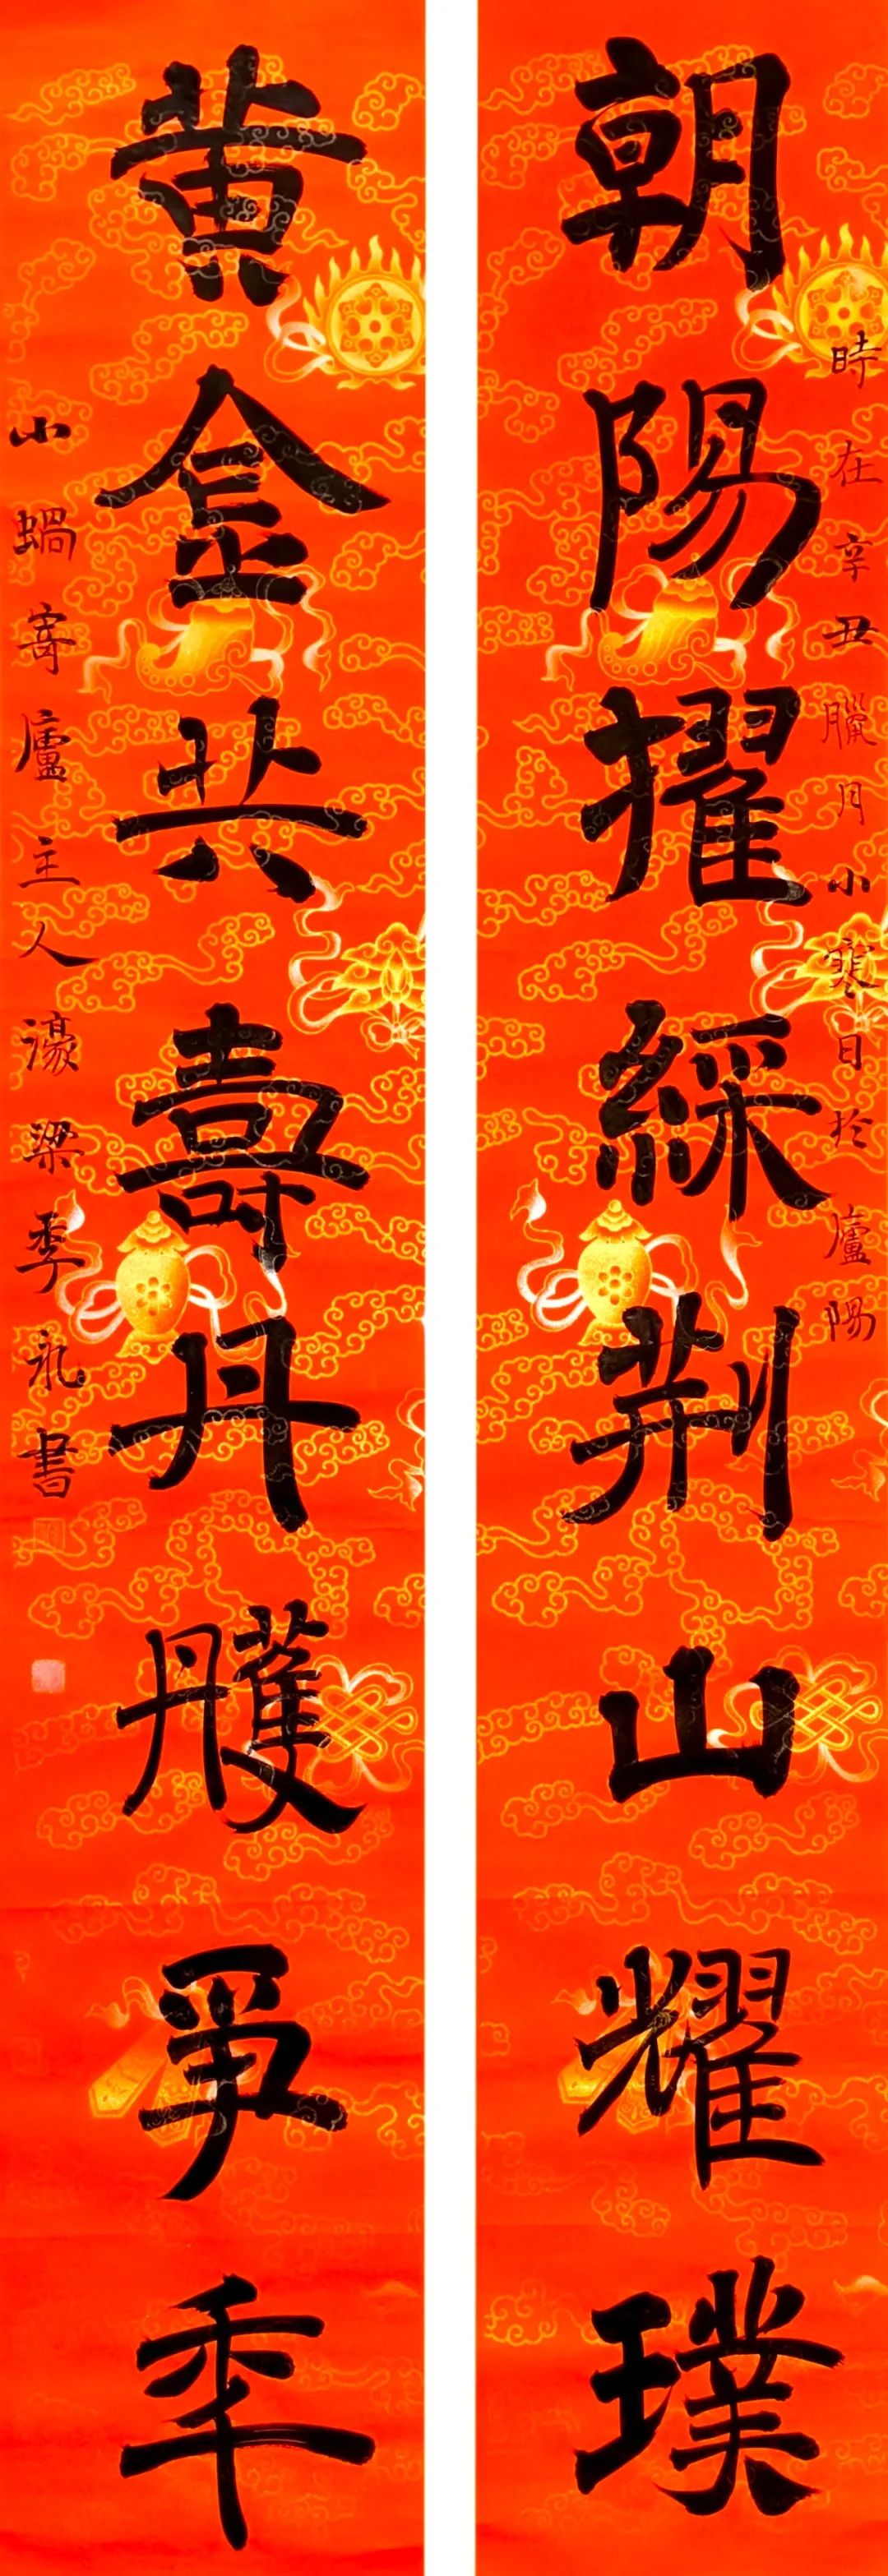 朝陽擢綵荆山耀璞
時在辛丑臘月小寒日於廬陽
黄金共壽丹雘爭年
小蝸寄廬主人濠梁季礼書